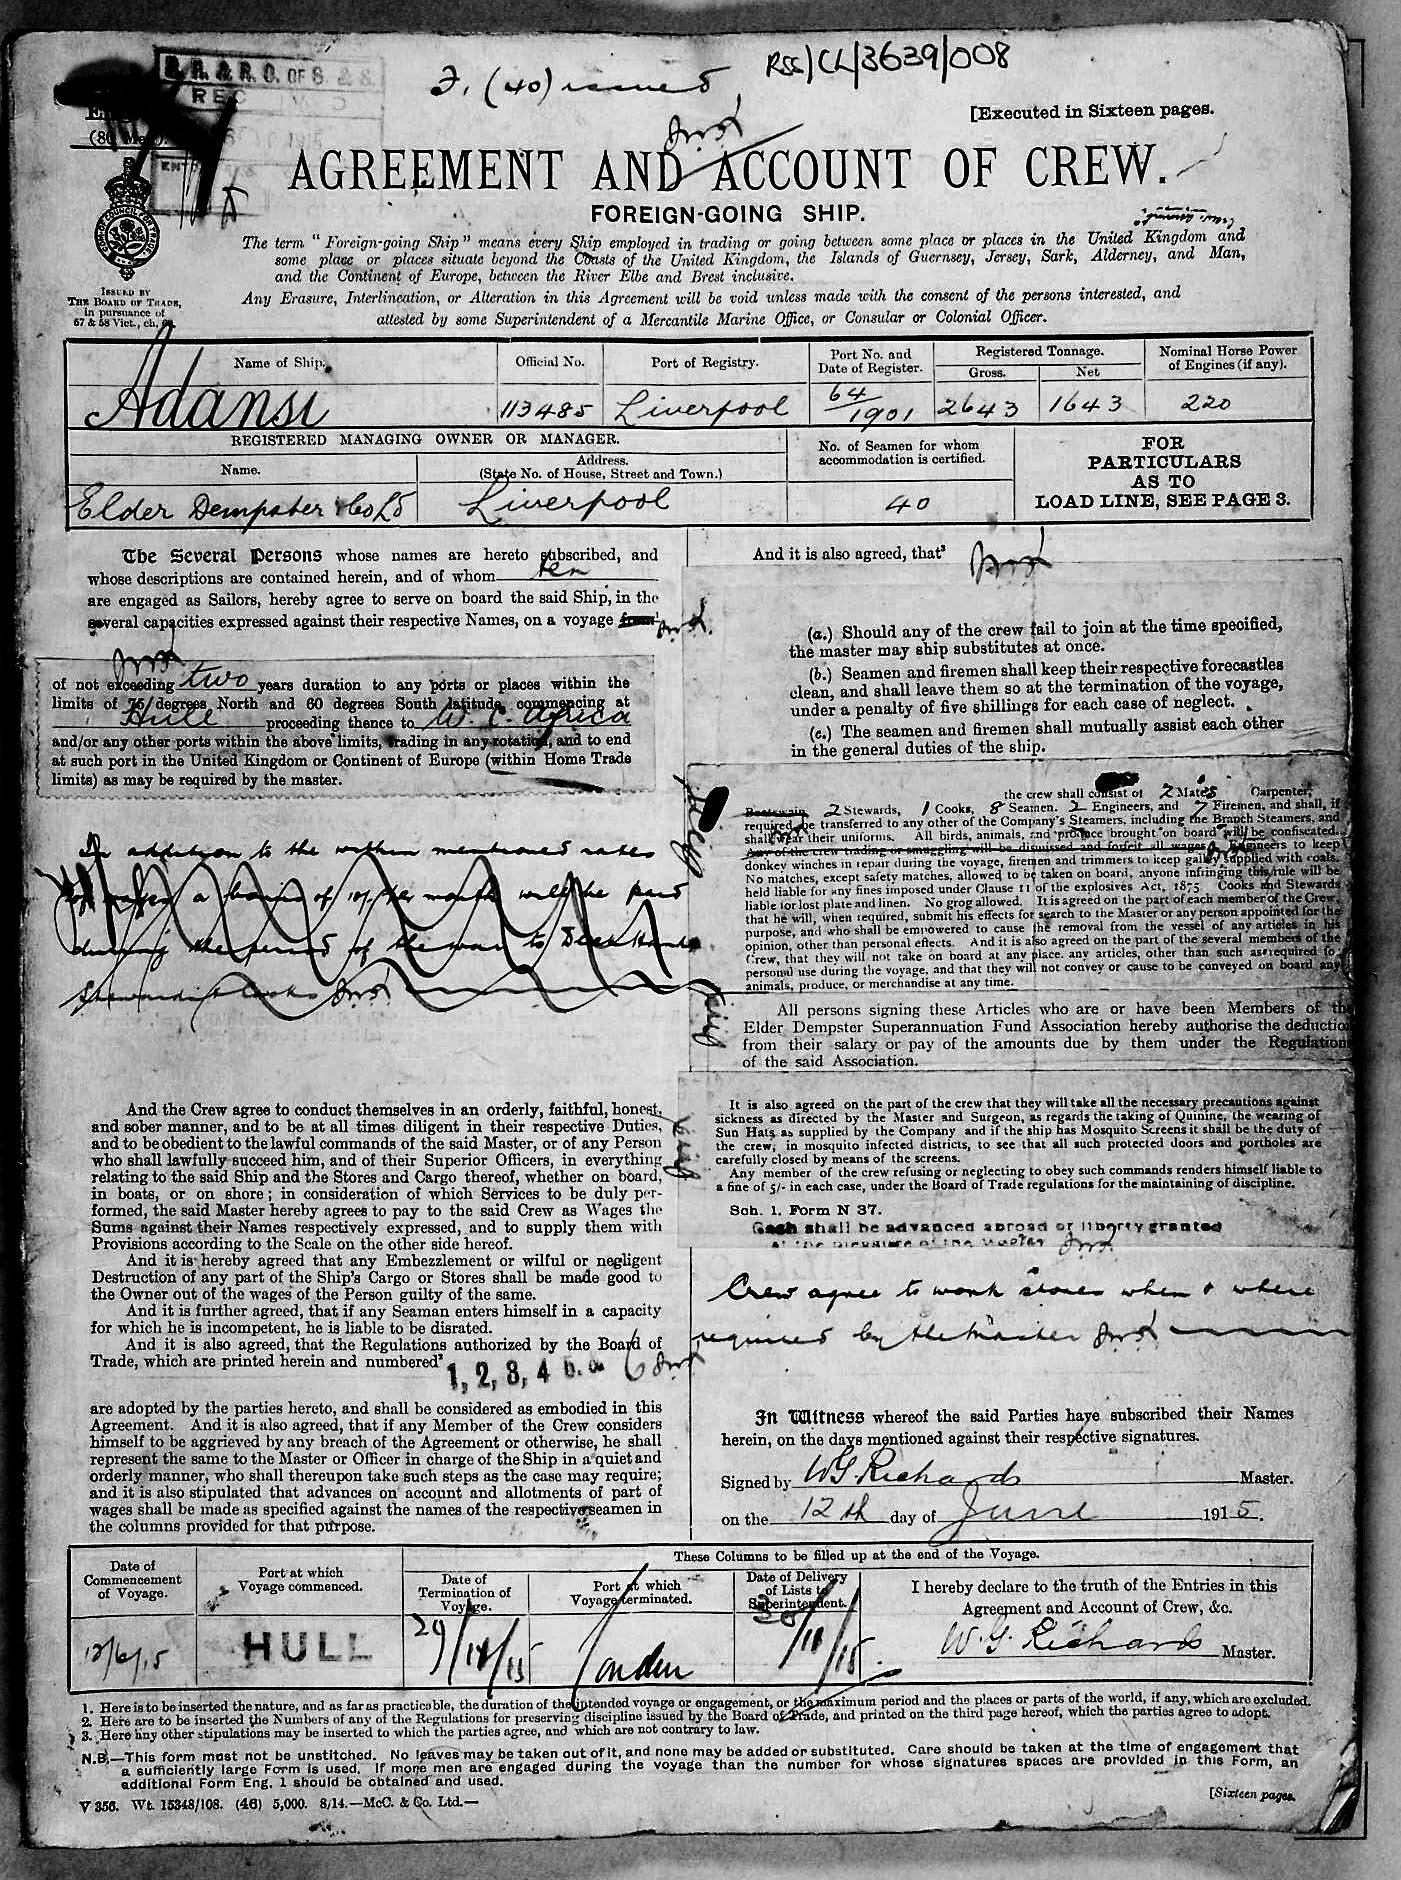 RSS/CL/3639/008
F. (40) issued
[Executed in Sixteen pages.
AGREEMENT AND ACCOUNT OF CREW.
FOREIGN-GOING SHIP.
The term "Foreign-going Ship" means every Ship employed in trading or going between some place or places in the United Kingdom and
some place or places situate beyond the Coasts of the United Kingdom, the Islands of Guernsey, Jersey, Sark, Alderney, and Man,
and the Continent of Europe, between the River Elbe and Brest inclusive.
Any Erasure, Interlineation, or Alteration in this Agreement will be void unless made with the consent of the persons interested, and
attested by some Superintendent of a Mercantile Marine Office, or Consular or Colonial Officer.
ISSUED BY
THE BOARD OF TRADE,
in pursuance of
57 & 58 Vict., ch.
Name of Ship. Official No. Port of Registry. Port No. and Date of Register. Registered Tonnage. Gross. Net Nominal Horse Power of Engines (if any).
Adansi 113485 Liverpool 64/1901 2643 1643 220
REGISTERED MANAGING OWNER OR MANAGER.
Name. Address. (State No. of House, Street and Town.)
No. of Seamen for whom accommodation is certified.
FOR
PARTICULARS
AS TO
LOAD LINE, SEE PAGE 3.
Elder Dempster & Co Ld Liverpool 40
The Several Persons whose names are hereto subscribed, and
whose descriptions are contained herein, and of whom ten
are engaged as Sailors, hereby agree to serve on board the said Ship, in the
several capacities expressed against their respective Names, on a voyage from
of not exceeding two years duration to any ports or places within the
limits of 75 degrees North and 60 degrees South latitude, commencing at
Hull proceeding thence to W. C. Africa
and/or any other ports within the above limits, trading in any rotation, and to end
at such port in the United Kingdom or Continent of Europe (within Home Trade
limits) as may be required by the master.
In addition to the within mentioned rates
of wages a bonus of 10/- per month will be paid
during the period of the war to Deck Hands
Stewards & Cooks
And the Crew agree to conduct themselves in an orderly, faithful, honest,
and sober manner, and to be at all times diligent in their respective Duties,
and to be obedient to the lawful commands of the said Master, or of any Person
who shall lawfully succeed him, and of their Superior Officers, in everything
relating to the said Ship and the Stores and Cargo thereof, whether on board,
in boats, or on shore; in consideration of which Services to be duly per-
formed, the said Master hereby agrees to pay to the said Crew as Wages the
Sums against their Names respectively expressed, and to supply them with
Provisions according to the Scale on the other side hereof.
And it is hereby agreed that any Embezzlement or wilful or negligent
Destruction of any part of the Ship's Cargo or Stores shall be made good to
the Owner out of the wages of the Person guilty of the same.
And it is further agreed, that if any Seaman enters himself in a capacity
for which he is incompetent, he is liable to be disrated.
And it is also agreed, that the Regulations authorized by the Board of
Trade, which are printed herein and numbered² 1, 2, 3, 4
are adopted by the parties hereto, and shall be considered as embodied in this
Agreement. And it is also agreed, that if any Member of the Crew considers
himself to be aggrieved by any breach of the Agreement or otherwise, he shall
represent the same to the Master or Officer in charge of the Ship in a quiet and
orderly manner, who shall thereupon take such steps as the case may require;
and it is also stipulated that advances on account and allotments of part of
wages shall be made as specified against the names of the respective seamen in
the columns provided for that purpose.
And it is also agreed, that³
(a.) Should any of the crew fail to join at the time specified,
the master may ship substitutes at once.
(b.) Seamen and firemen shall keep their respective forecastles
clean, and shall leave them so at the termination of the voyage,
under a penalty of five shillings for each case of neglect.
(c.) The seamen and firemen shall mutually assist each other
in the general duties of the ship.
the crew shall consist of 2 Mates Carpenter,
Boatswain, 2 Stewards, 1 Cooks, 8 Seamen. 2 Engineers, and 7 Firemen, and shall, if
required, be transferred to any other of the Company's Steamers, including the Branch Steamers, and
shall wear their uniforms. All birds, animals, and produce brought on board will be confiscated.
Any of the crew trading or smuggling will be dismissed and forfeit all wages. Engineers to keep
donkey winches in repair during the voyage, firemen and trimmers to keep galley supplied with coals.
No matches, except safety matches, allowed to be taken on board, anyone infringing this rule will be
held liable for any fines imposed under Clause 11 of the explosives Act, 1875 Cooks and Stewards
liable for lost plate and linen. No grog allowed. It is agreed on the part of each member of the Crew,
that he will, when required, submit his effects for search to the Master or any person appointed for the
purpose, and who shall be empowered to cause the removal from the vessel of any articles in his
opinion, other than personal effects. And it is also agreed on the part of the several members of the
Crew, that they will not take on board at any place, any articles, other than such as required for
personal use during the voyage, and that they will not convey or cause to be conveyed on board any
animals, produce, or merchandise at any time.
All persons signing these Articles who are or have been Members of the
Elder Dempster Superannuation Fund Association hereby authorise the deduction
from their salary or pay of the amounts due by them under the Regulations
of the said Association.
It is also agreed on the part of the crew that they will take all the necessary precautions against
sickness as directed by the Master and Surgeon, as regards the taking of Quinine, the wearing of
Sun Hats as supplied by the Company and if the ship has Mosquito Screens it shall be the duty of
the crew, in mosquito infected districts, to see that all such protected doors and portholes are
carefully closed by means of the screens.
Any member of the crew refusing or neglecting to obey such commands renders himself liable to
a fine of 5/- in each case, under the Board of Trade regulations for the maintaining of discipline.
Sch. 1. Form N 37.
Cash shall be advanced abroad or liberty granted
at the pleasure of the Master
Crew agree to work stores when & where
required by the Master
In Witness whereof the said Parties have subscribed their Names
herein, on the days mentioned against their respective signatures.
Signed by W G Richards Master.
on the 12th day of June 1915.
These Columns to be filled up at the end of the Voyage.
Date of Commencement of Voyage. Port at which Voyage commenced. Date of Termination of Voyage. Port at which Voyage terminated. Date of Delivery of Lists to Superintendent.
I hereby declare to the truth of the Entries in this
Agreement and Account of Crew, &c.
12/6/15 HULL London
W. G. Richards Master.
1. Here is to be inserted the nature, and as far as practicable, the duration of the intended voyage or engagement, or the maximum period and the places or parts of the world, if any, which are excluded.
2. Here are to be inserted the Numbers of any of the Regulations for preserving discipline issued by the Board of Trade, and printed on the third page hereof, which the parties agree to adopt.
3. Here any other stipulations may be inserted to which the parties agree, and which are not contrary to law.
N.B.—This form must not be unstitched. No leaves may be taken out of it, and none may be added or substituted. Care should be taken at the time of engagement that
a sufficiently large Form is used. If more men are engaged during the voyage than the number for whose signatures spaces are provided in this Form, an
additional Form Eng. 1 should be obtained and used.
V 356. Wt. 15348/108. (46) 5,000. 8/14.—McC. & Co. Ltd.—
[Sixteen pages.